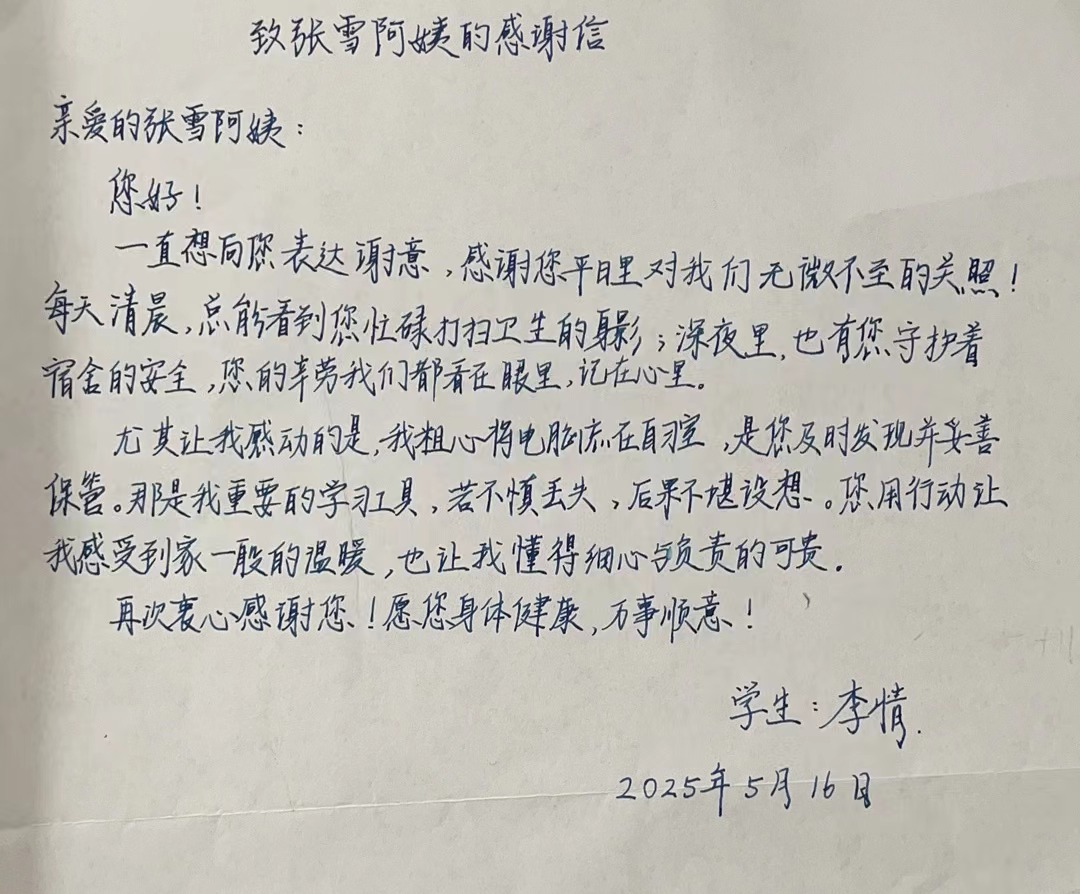 致张雪阿姨的感谢信
亲爱的张雪阿姨：
您好！
一直想向您表达谢意，感谢您平日里对我们无微不至的关照！
每天清晨，总能看到您忙碌打扫卫生的身影；深夜里，也有您守护着
宿舍的安全，您的辛劳我们都看在眼里，记在心里。
尤其让我感动的是，我粗心将电脑流在自习室，是您及时发现并妥善
保管。那是我重要的学习工具，若不慎丢失，后果不堪设想。您用行动让
我感受到家一般的温暖，也让我懂得细心与负责的可贵。
再次衷心感谢您！愿您身体健康，万事顺意！
学生：李情.
2025年5月16日